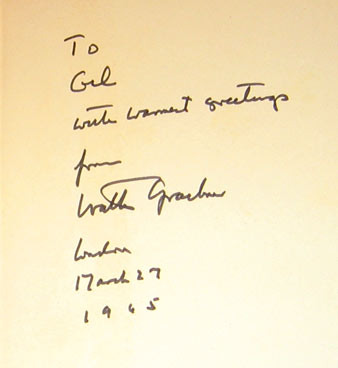 To
Gil
with warmest greetings
from
Walter Graebner
London
March 27
1965